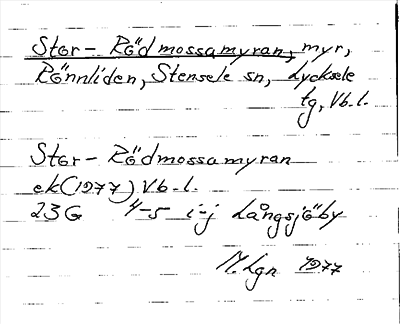 Stor-Rödmossamyran, myr,
Rönnliden, Stensele sn, Lycksele
tg, Vb.l.
Stor-Rödmossamyran
ek(1977) Vb.l.
23G 4-5 i-j Långsjöby
M.Lgn 1977